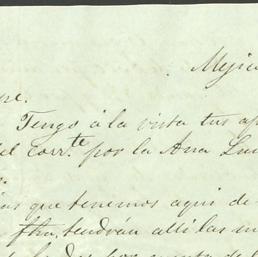 Mejic
pe.
Tengo á la vista tus ap
el corr.te por la Ana Lui
as que tenemos aqui de
fha, tendrán alli las m